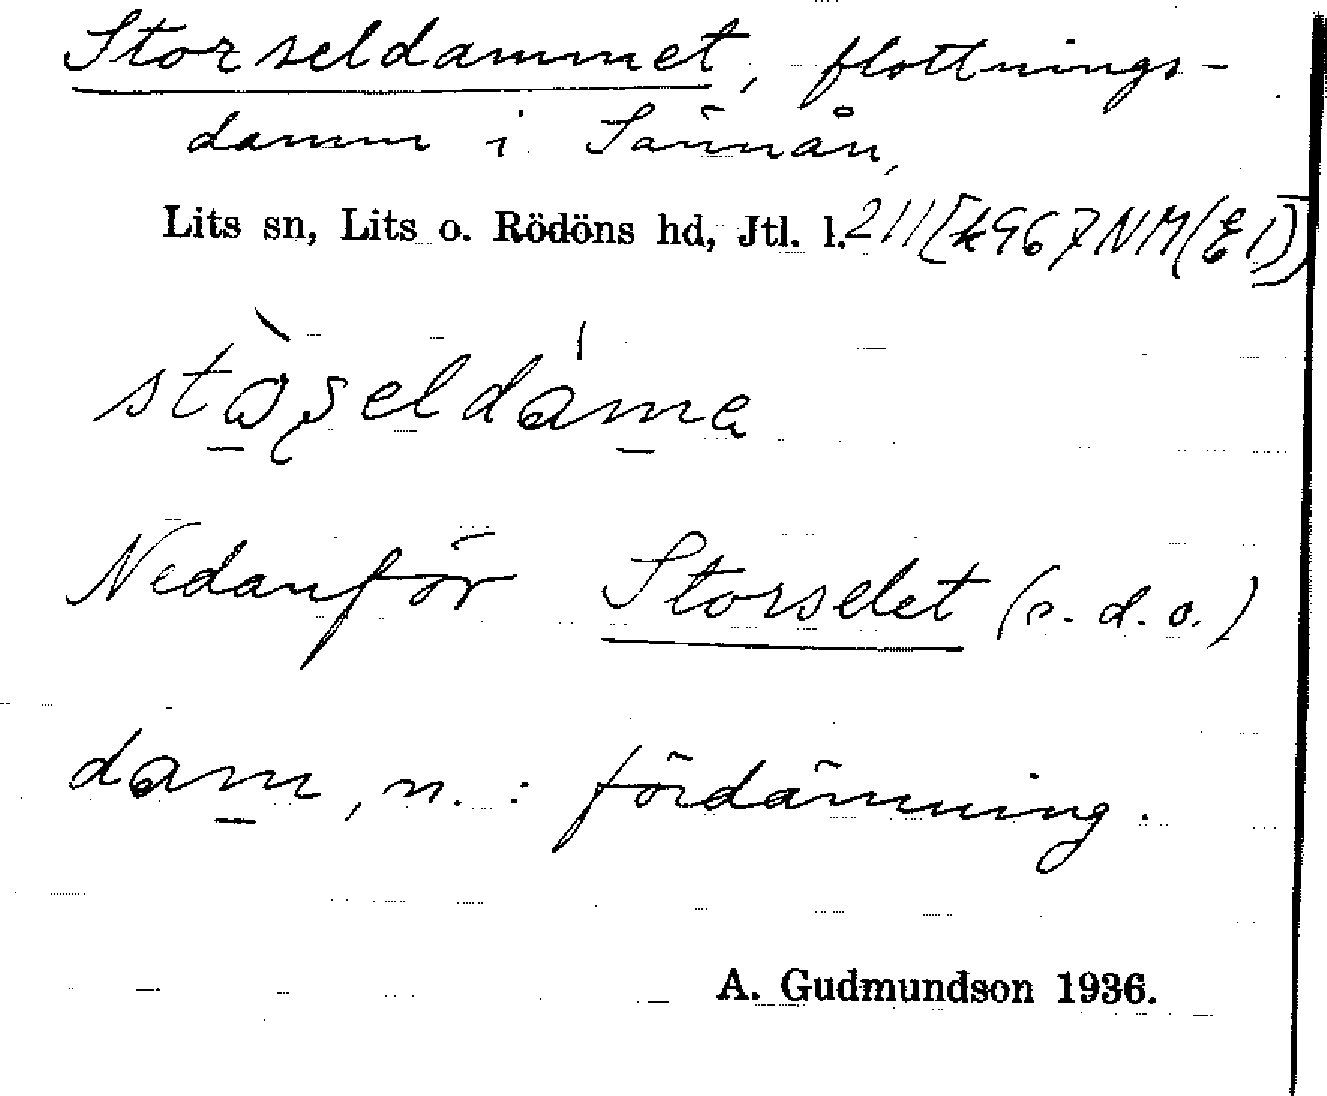 Storseldammet, flottnings-
damm i Sännån,
Lits sn, Lits o. Rödöns hd, Jtl. l. 211 [k 967 NM (E1)]
Nedanför Storselet (s. d. o.)
dam, n. : fördämning.
A. Gudmundson 1936.